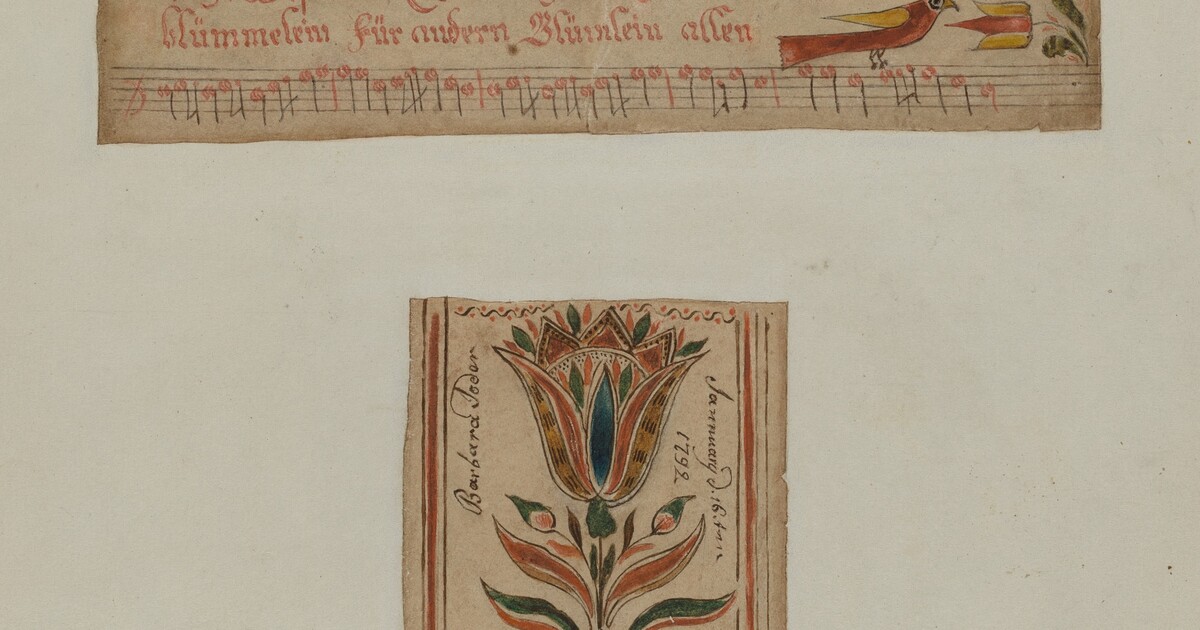 blümmelein Für andern Blümlein allen
Barbara Joder
Jannuary d. 16. ten
1792